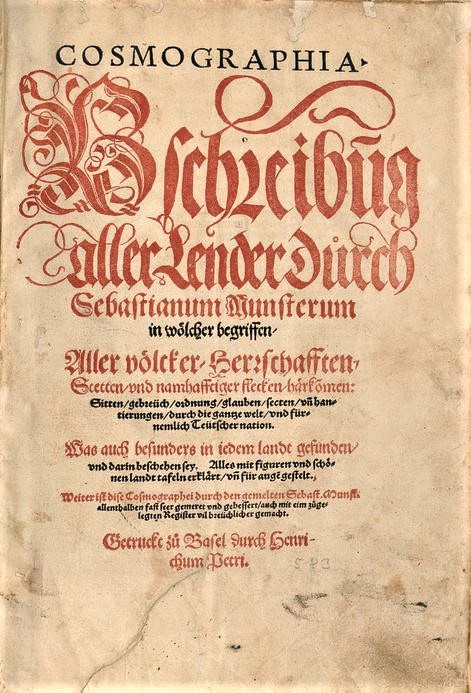 COSMOGRAPHIA.
Bschreibūg
aller Lender durch
Sebastianum Munsterum
in wölcher begriffen/
Aller völcker/ Herrschafften/
Stetten/ vnd namhafftiger flecken/ härkōmen:
Sitten/ gebreüch/ ordnung/ glauben/ secten/ vn̄ han-
tierungen/ durch die gantze welt/ vnd für-
nemlich Teütscher nation.
Was auch besunders in iedem landt gefunden/
vnd darin beschehen sey. Alles mit figuren vnd schö-
nen landt taflen erklärt/ vn̄ für augē gestelt.
Weiter ist dise Cosmographei durch den gemelten Sebast. Munst.
allenthalben fast seer gemeret vnd gebessert/ auch mit eim zůge-
legten Register vil breüchlicher gemacht.
Getruckt zů Basel durch Henri-
chum Petri.
583